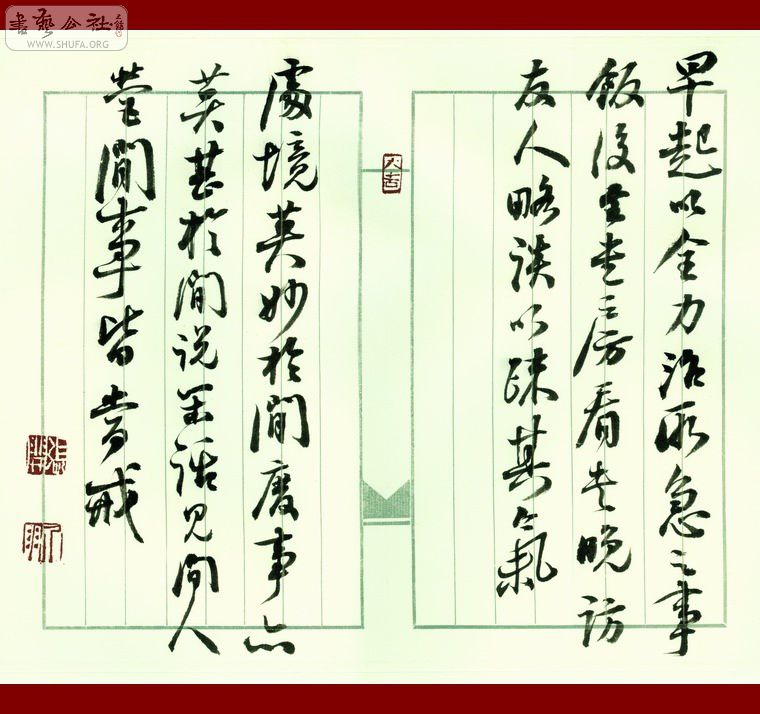 書藝公社
WWW.SHUFA.ORG
早起以全力治所急之事
飯後書房看書晚訪
友人略談以疎其氣
大吉
處境莫妙於閒廢事亦
莫甚於閒说閒話見閒人
營閒事皆當戒